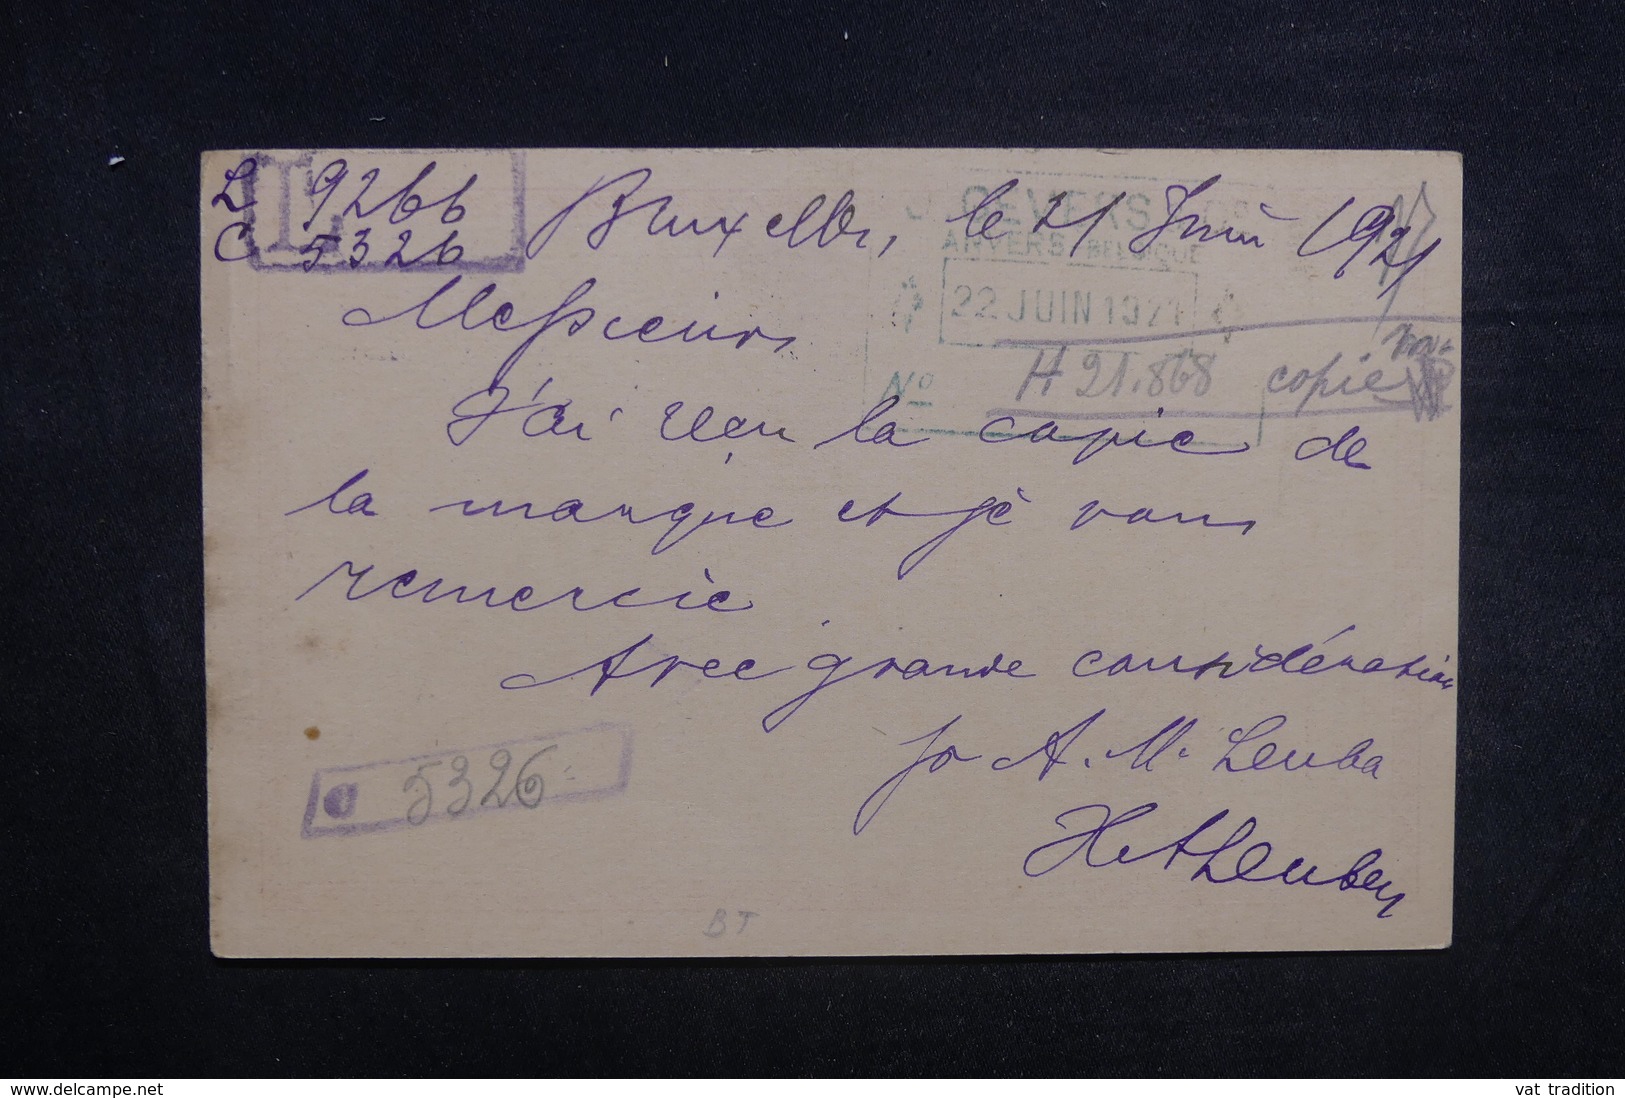 L 9266
C 5326
Bruxelles, le 21 Juin 1921
J. GEVERS
ANVERS, BELGIQUE
22 JUIN 1921
No H 21.868 copie
Messieurs
J'ai reçu la copie de
la marque et je vous
remercie.
Avec grande considération
po A. M. Leuba
C 5326
BT
www.delcampe.net
vat tradition